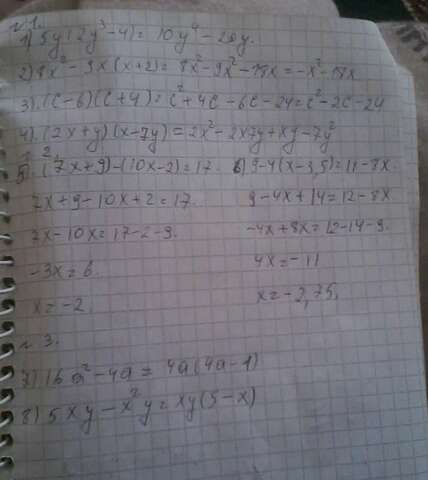 N 1.
1) 5y(2y³-4) = 10y⁴ - 20y.
2) 8x² - 9x(x+2) = 8x² - 9x² - 18x = -x² - 18x
3). (c-6)(c+4) = c² + 4c - 6c - 24 = c² - 2c - 24
4). (2x+y)(x-7y) = 2x² - 2x7y + xy - 7y²
N 2.
5). (7x+9)-(10x-2)=17.
7x+9-10x+2=17.
7x-10x=17-2-9.
-3x=6.
x=-2.
6) 9-4(x-3,5)=11-8x.
9-4x+14=12-8x
-4x+8x=12-14-9.
4x=-11
x=-2,75.
N 3.
7) 16a² - 4a = 4a(4a-1)
8) 5xy - x²y = xy(5-x)